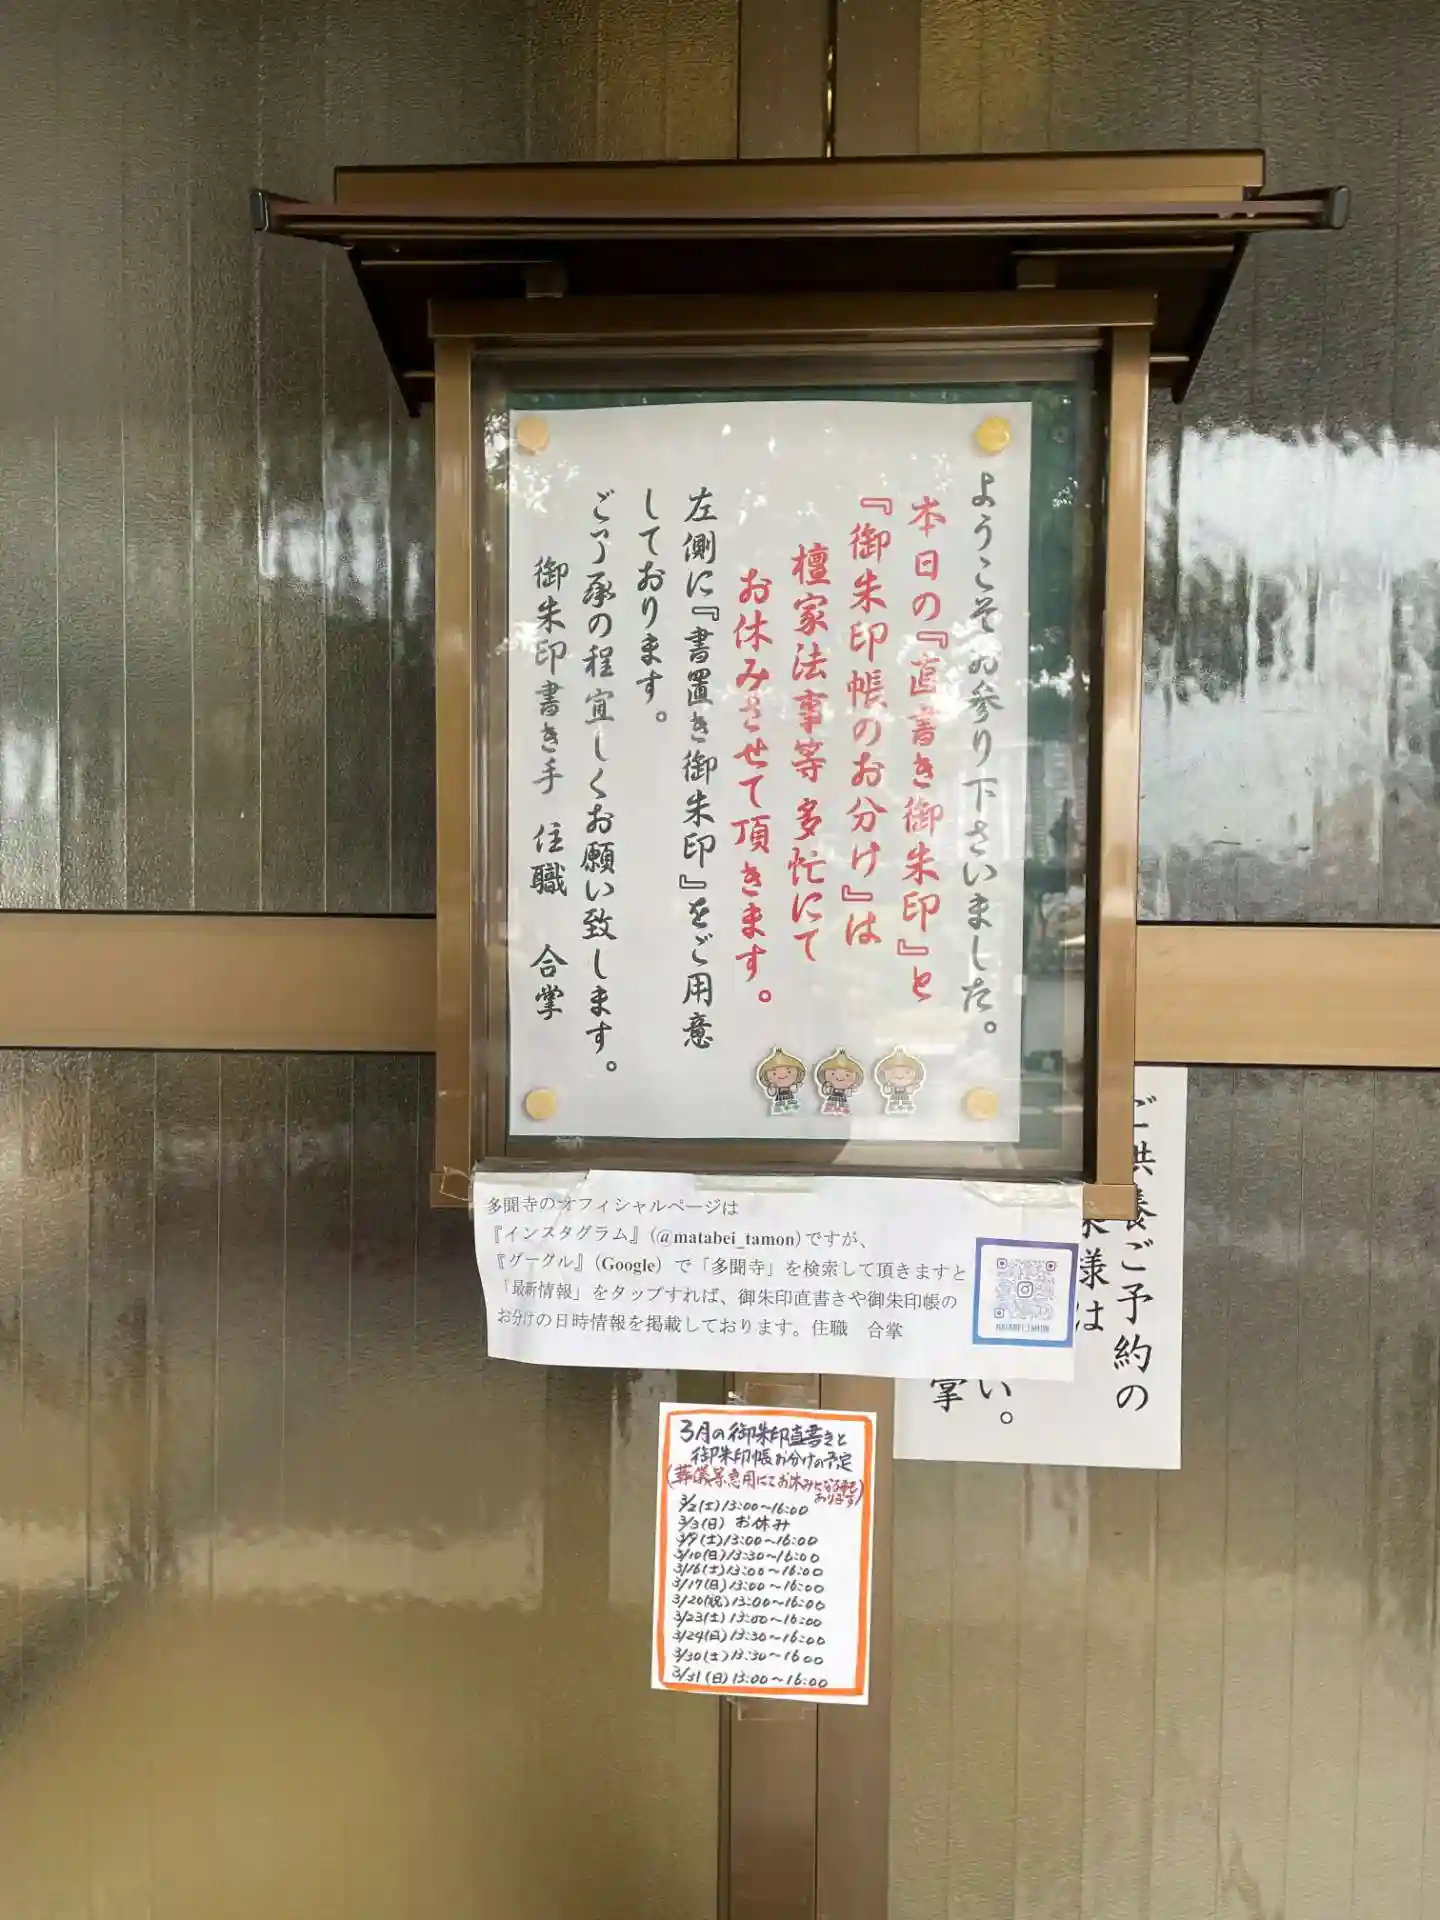 ようこそお参り下さいました。
本日の『直書き御朱印』と
『御朱印帳のお分け』は
檀家法事等多忙にて
お休みさせて頂きます。
左側に『書置き御朱印』をご用意
しております。
ご了承の程宜しくお願い致します。
御朱印書き手 住職 合掌
多聞寺のオフィシャルページは
『インスタグラム』(@matabei_tamon)ですが、
『グーグル』(Google)で「多聞寺」を検索して頂きますと
「最新情報」をタップすれば、御朱印直書きや御朱印帳の
お分けの日時情報を掲載しております。住職 合掌
MATABEI_TAMON
ご供養ご予約の
様は
い。
掌
3月の御朱印直書きと
御朱印帳お分けの予定
(葬儀等急用にてお休みとなる事もあります)
3/2(土)13:00〜16:00
3/3(日) お休み
3/9(土)13:00〜16:00
3/10(日)13:30〜16:00
3/16(土)13:00〜16:00
3/17(日)13:00〜16:00
3/20(祝)13:00〜16:00
3/23(土)13:00〜16:00
3/24(日)13:30〜16:00
3/30(土)13:30〜16:00
3/31(日)13:00〜16:00